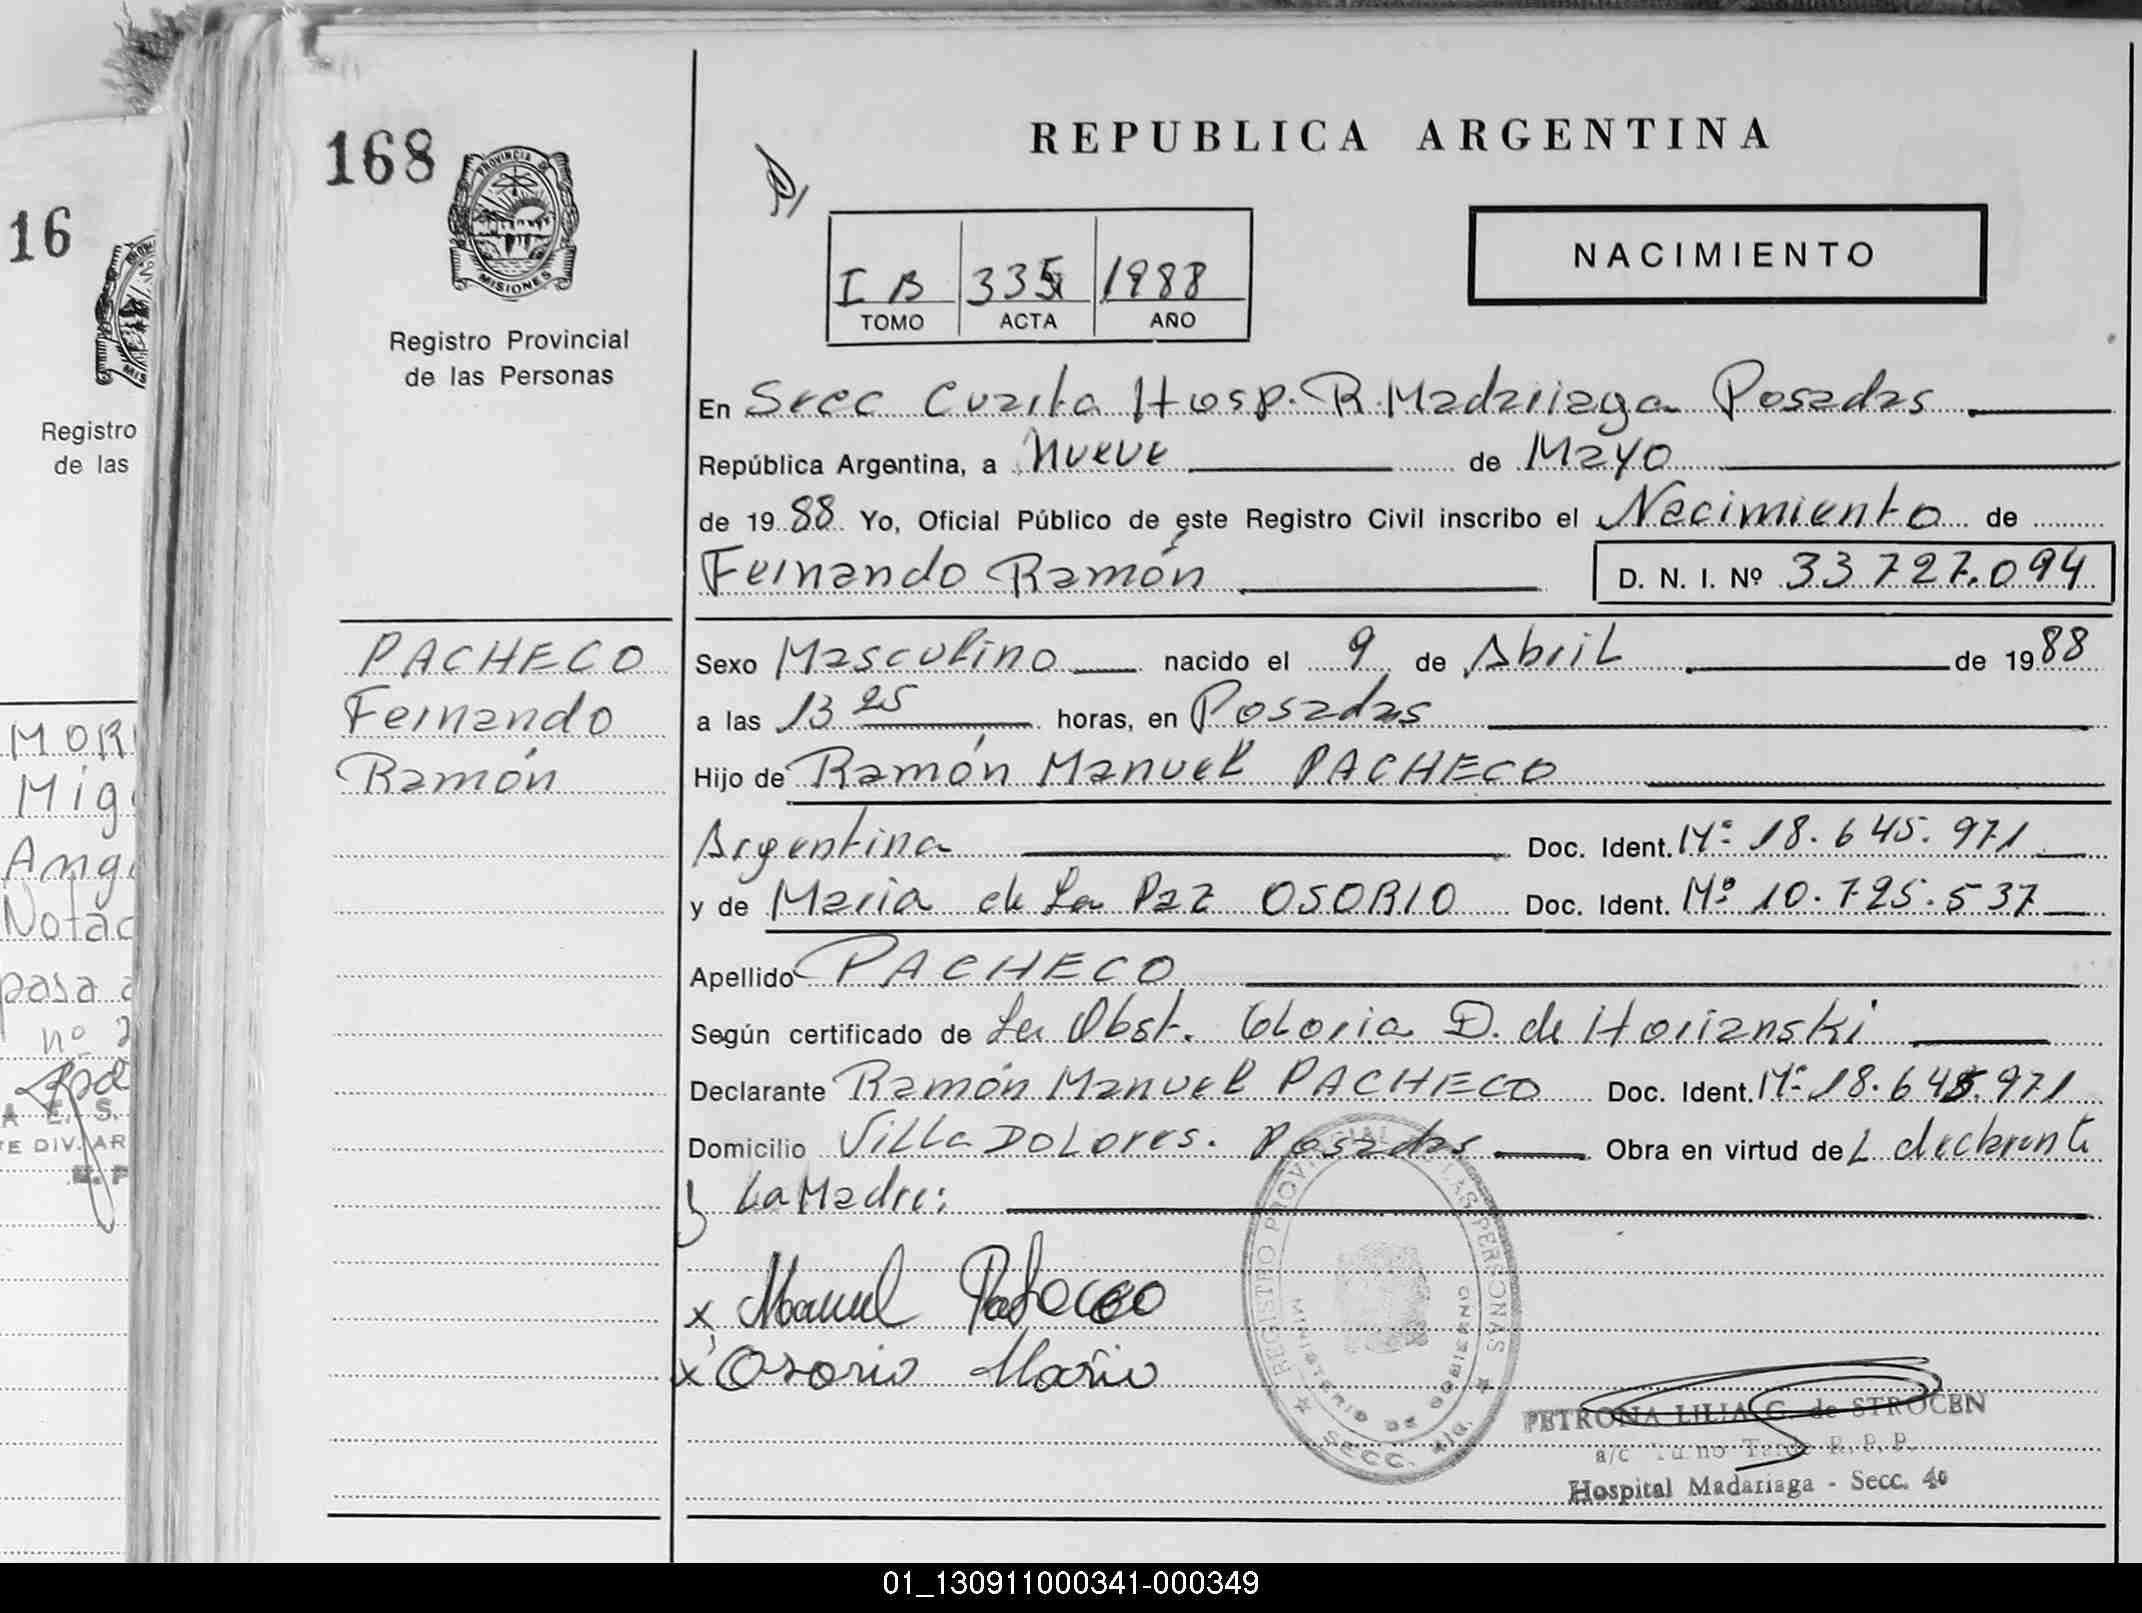 168
PROVINCIA D
MISIONES
Registro Provincial
de las Personas
PACHECO
Fernando
Ramón
16
Registro
de las
MOR
Mig
Ang
Notac
pasa a
nº 2
A E. S.
E DIV. AR
REPUBLICA ARGENTINA
NACIMIENTO
I B 335 1988
TOMO ACTA AÑO
En Secc Cuarta Hosp. R. Madariaga Posadas
República Argentina, a Nueve de Mayo
de 19 88 Yo, Oficial Público de este Registro Civil inscribo el Nacimiento de
Fernando Ramón D. N. I. Nº 33.727.094
Sexo Masculino nacido el 9 de Abril de 19 88
a las 13 25 horas, en Posadas
Hijo de Ramón Manuel PACHECO
Argentina Doc. Ident. Mº 18.645.971
y de Maria de La Paz OSORIO Doc. Ident. Mº 10.725.537
Apellido PACHECO
Según certificado de La Obst. Gloria D. de Horianski
Declarante Ramón Manuel PACHECO Doc. Ident. Mº 18.645.971
Domicilio Villa Dolores. Posadas Obra en virtud del declarante
y La Madre:
x Manuel Pacheco
x Osorio Maria
REGISTRO PROVINCIAL DE LAS PERSONAS
MINISTERIO DE GOBIERNO
SECC. 4ta.
PETRONA LILIA G. de STROCEN
a/c Turno Tarde R. P. P.
Hospital Madariaga - Secc. 4a
01_130911000341-000349